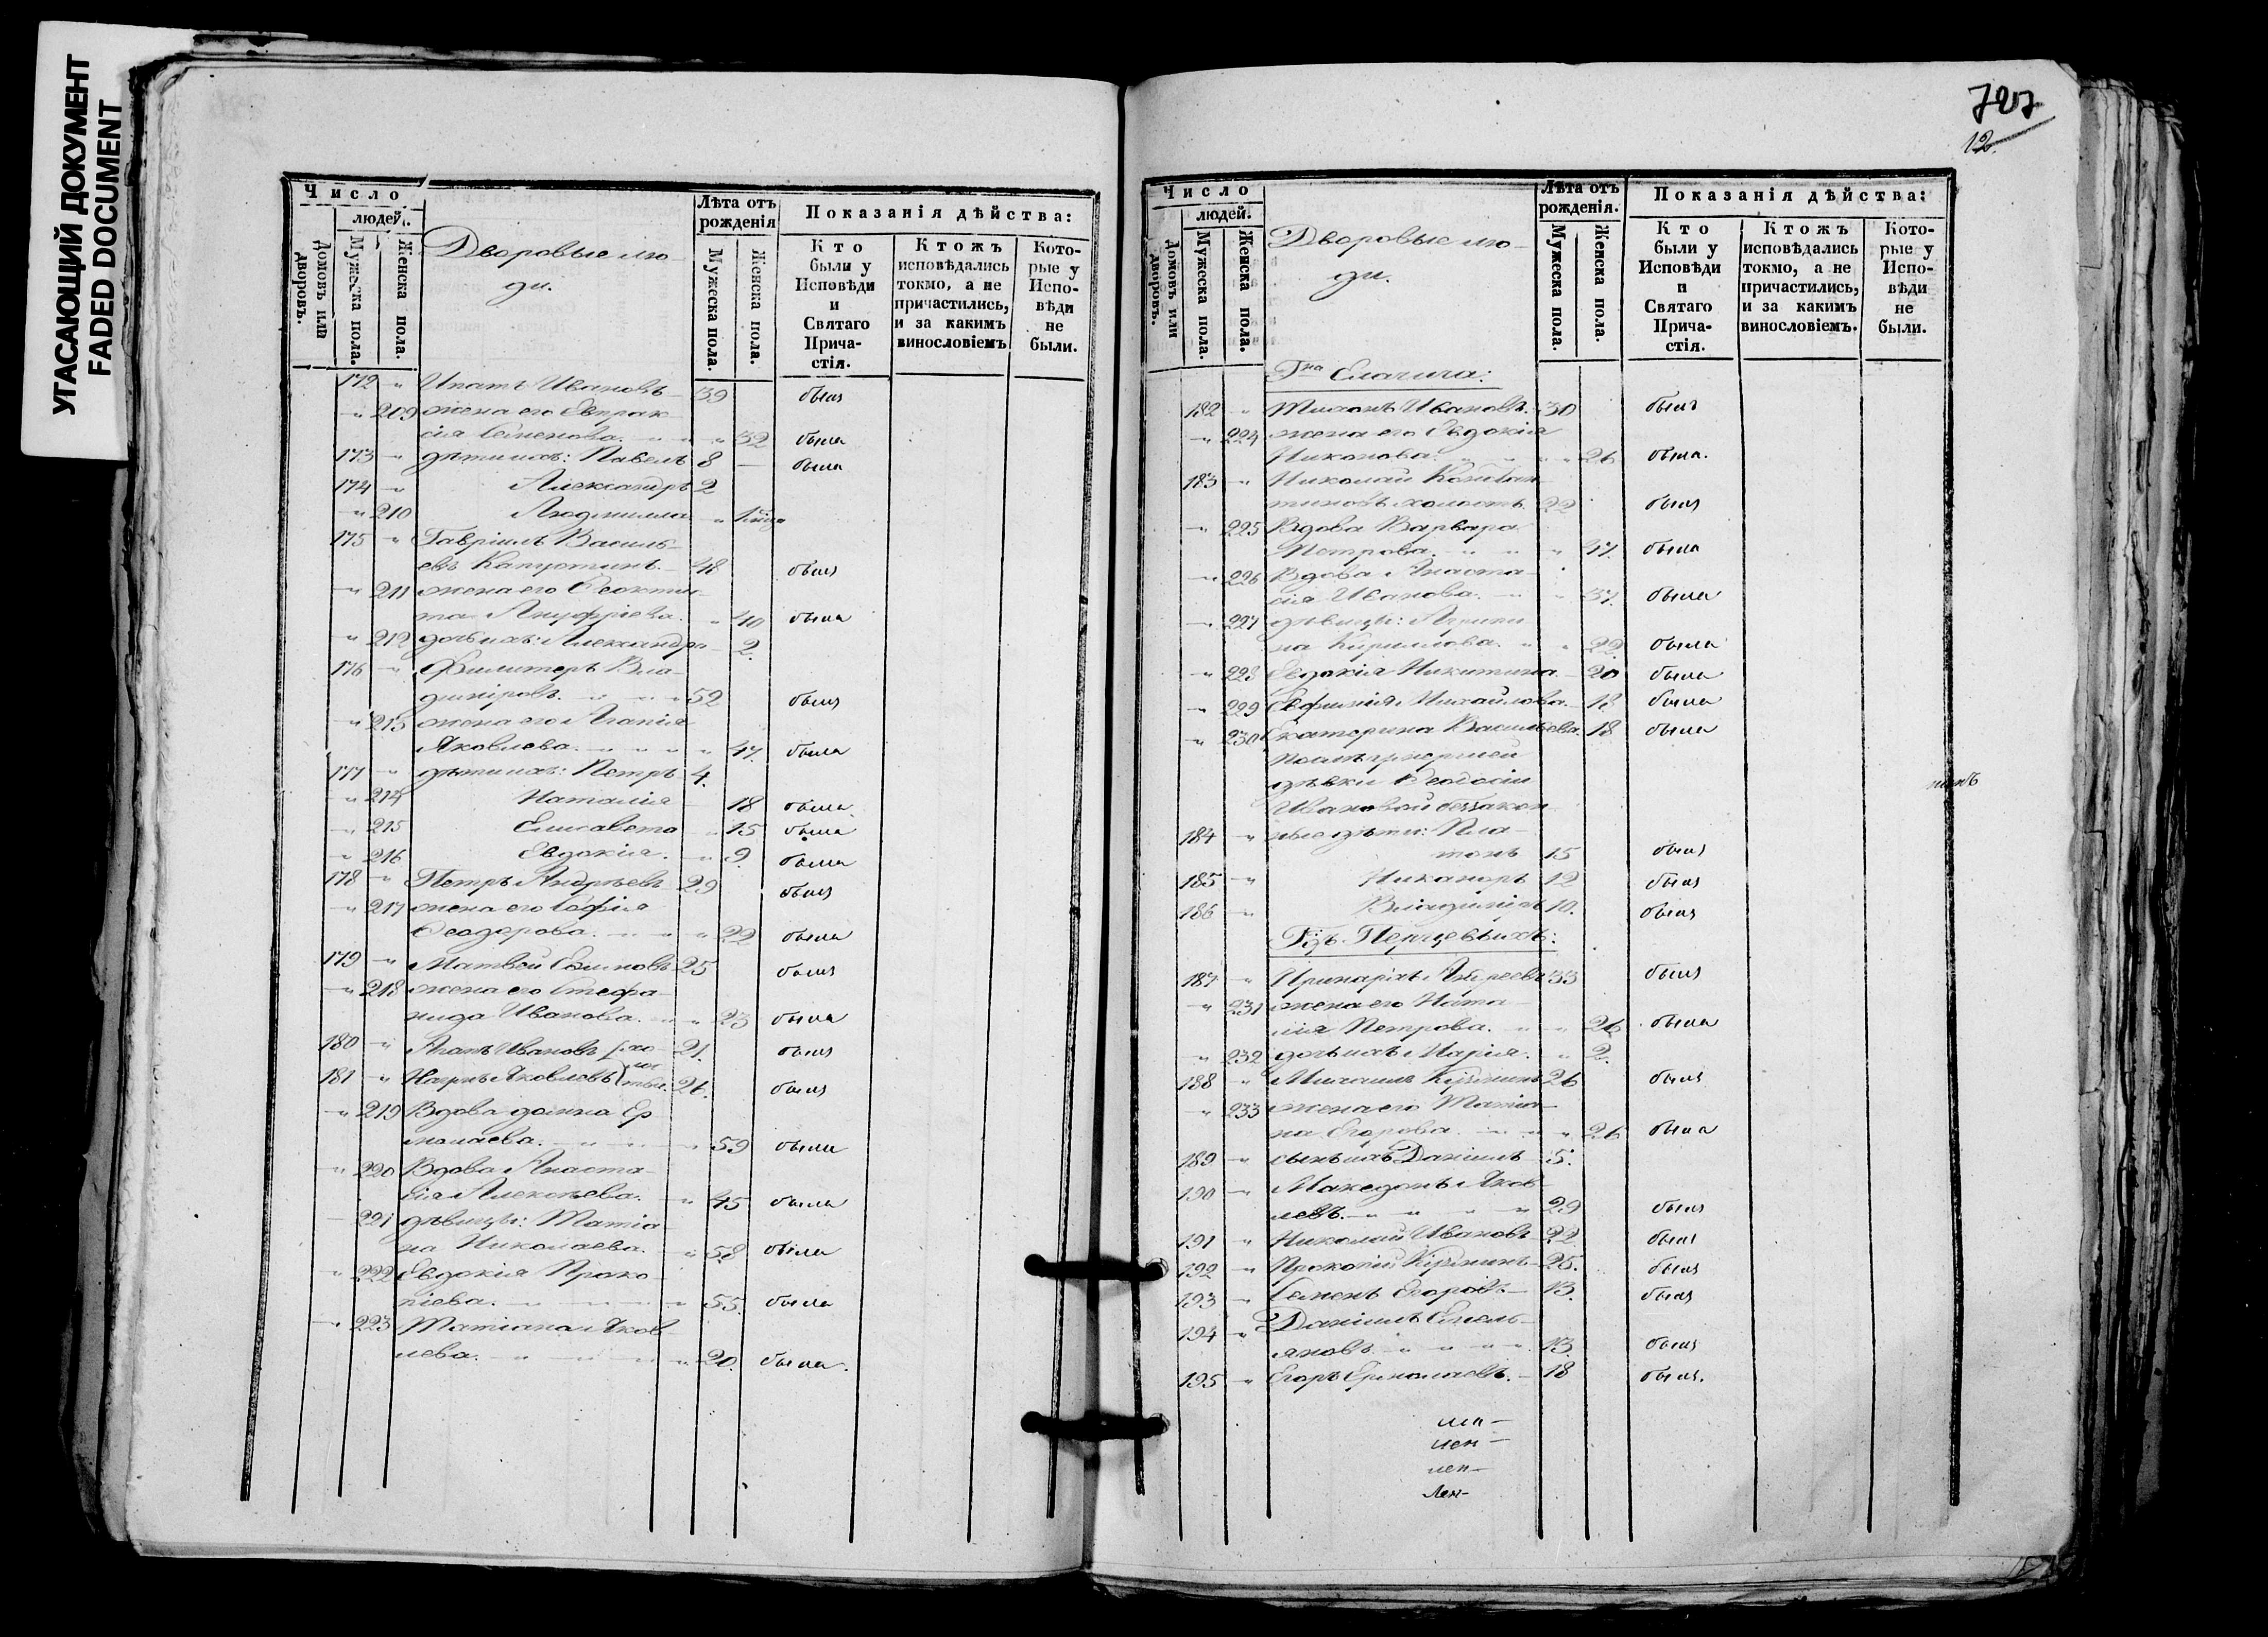 УГАСАЮЩИЙ ДОКУМЕНТ
FADED DOCUMENT
Число
людей.
Домовъ или дворовъ.
Мужеска пола.
Женска пола.
Дворовые лю-
ди.
Лѣта отъ рожденія
Мужеска пола.
Женска пола.
Показанія дѣйства:
Кто были у Исповѣди и Святаго Прича-стія.
Ктожъ исповѣдались токмо, а не причастились, и за какимъ винословіемъ
Кото-рые у Испо-вѣди не были.
172 " Ипатъ Ивановъ 39 былъ
" 209 жена его Евпрак-
сія Семенова. " 32 была
173 " дѣти ихъ: Павелъ 8 — была
174 " Александръ 2
" 210 Людмилла "
175 " Гавріилъ Василь-
евъ Капустинъ. 48 былъ
" 211 жена его Ѳеокти-
та Ануфріева. " 40 была
" 212 дочь ихъ: Александра 2.
176 " Филитеръ Вла-
диміровъ. 52 былъ
" 213 жена его Агапія
Яковлева. " 47. была
177 " дѣти ихъ: Петръ 4.
" 214 Наталія 18 была
" 215 Елисавета " 15 была
" 216 Евдокія. " 9. была
178 " Петръ Андреевъ 29 былъ
" 217 жена его Софія
Ѳеодорова. " 22 была
179 " Матвей Семеновъ 25 былъ
" 218 жена его Стефа-
нида Иванова. " 23 была
180 " Ивановъ 21. былъ
181 " Яковлевъ 26. былъ
" 219 Вдова Домна Ер-
молаева. " 59 была
" 220 Вдова Анаста-
сія Алексѣева. " 45 была
221 дѣвицы: Татіа-
на Николаева. " 58 была
" 222 Евдокія Проко-
піева. " 55. была
" 223 Татіана Яков-
лева. " 20. была.
727
12.
Число
людей.
Домовъ или дворовъ.
Мужска пола.
Женска пола.
Дворовые лю-
ди.
Лѣта отъ рожденія.
Мужеска пола.
Женска пола.
Показанія дѣйства:
Кто были у Исповѣди и Святаго Прича-стія.
Ктожъ исповѣдались токмо, а не причастились, и за какимъ винословіемъ.
Кото-рые у Испо-вѣди не были.
Гна Елагина:
182 " Тихонъ Ивановъ. 30 былъ
" 224 жена его Евдокія
Никонова. " 26 была.
183 " Николай Констан-
тиновъ холостъ. 22 былъ
" 225 Вдова Варвара
Петрова. " 47. была
" 226 Вдова Анаста-
сія Иванова. " 37. была
" 227 дѣвицы: Агрипи-
на Кириллова. " 22. была
" 228 Евдокія Никитина. 20 была
" 229 Евфимія Михайлова. 18 была
" 230 Екатерина Васильева. 18 была
дѣвки Ѳеодосіи
Ивановой беззакон-
184 " ные дѣти: Пла-
тонъ 15 былъ
185 " Никаноръ 12 былъ
186 " Владиміръ 10. былъ
187 " Иринархъ Андреевъ 33 былъ
" 231 жена его Ната-
лія Петрова. " 26 была
" 232 дочь ихъ Марія. " 2.
188 " Михаилъ 26 былъ
" 233 жена его Татіа-
на Егорова. " 26 была
189 " сынъ ихъ Даніилъ 5.
190 " Македонъ Яков-
левъ. " 29 былъ
191 " Николай Ивановъ 22. былъ
192 " Прокопій 25. былъ
193 " Семенъ Егоровъ 13. былъ
194 " Даніилъ Емель-
яновъ " 13. былъ
195 " Егоръ Ермолаевъ. 18 былъ.